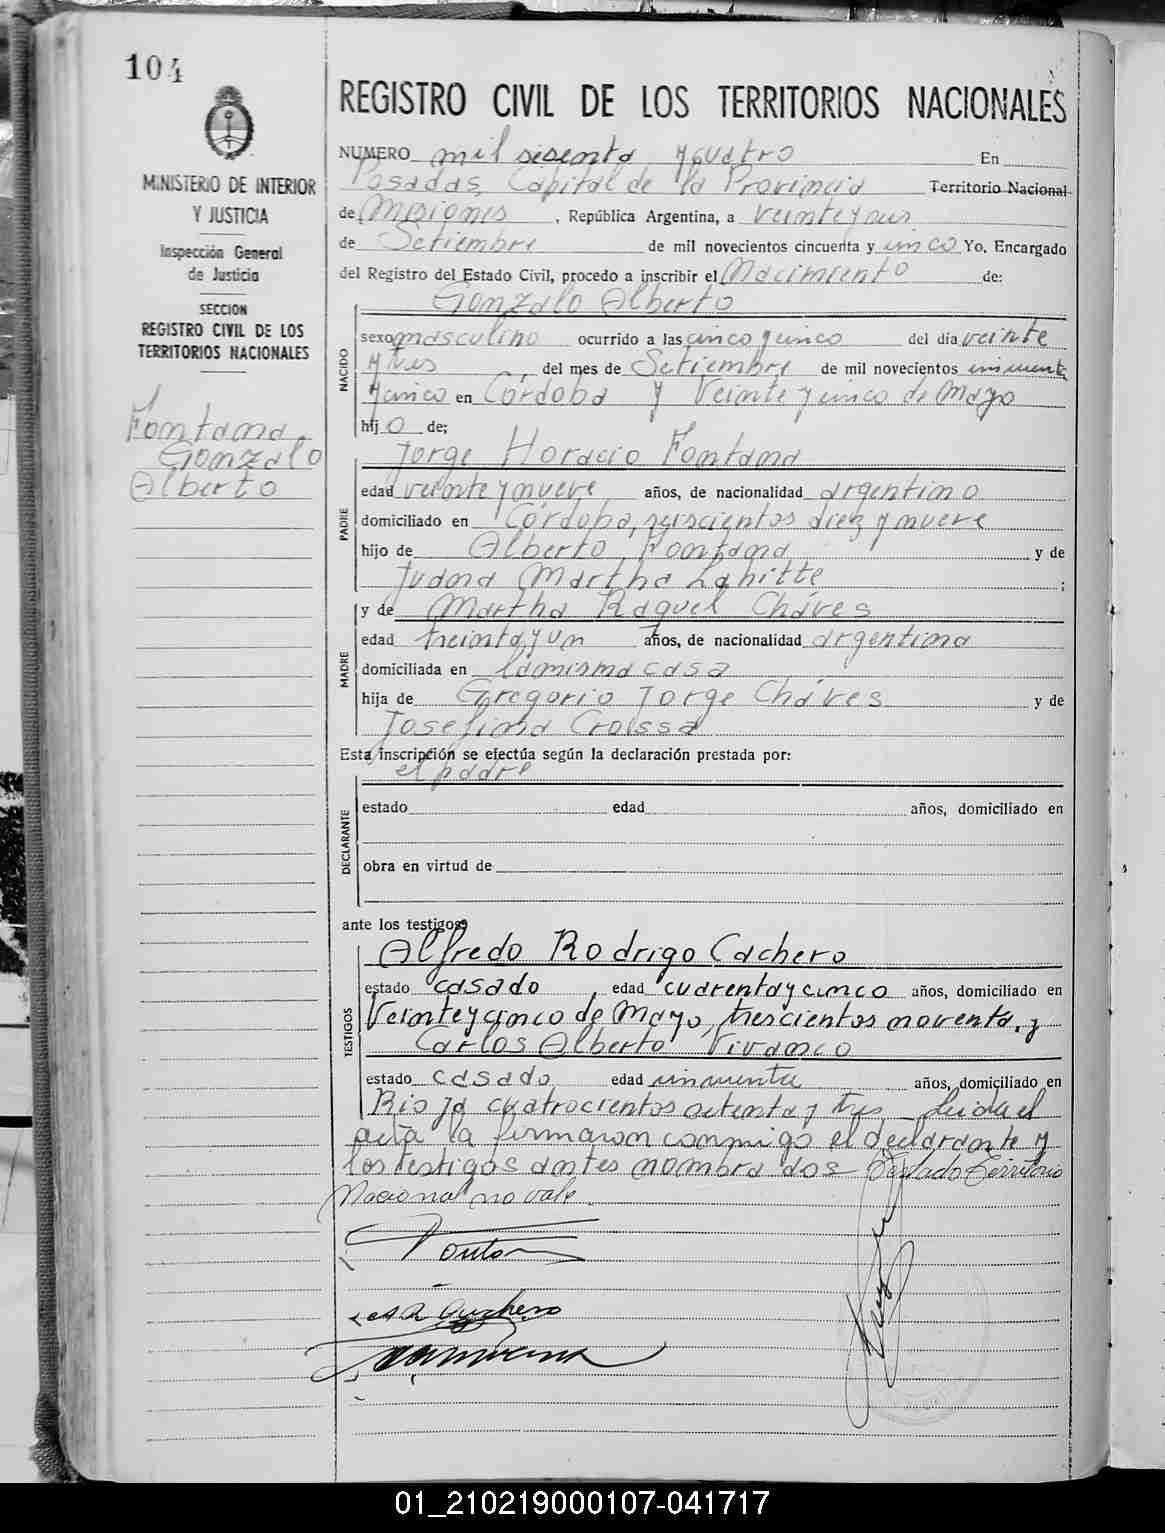 104
MINISTERIO DE INTERIOR
Y JUSTICIA
Inspección General
de Justicia
SECCION
REGISTRO CIVIL DE LOS
TERRITORIOS NACIONALES
Fontana
Gonzalo
Alberto
REGISTRO CIVIL DE LOS TERRITORIOS NACIONALES
NUMERO mil sesenta y cuatro En
Posadas, Capital de la Provincia Territorio Nacional
de Misiones, República Argentina, a veinte y seis
de Setiembre de mil novecientos cincuenta y cinco Yo, Encargado
del Registro del Estado Civil, procedo a inscribir el Nacimiento de:
Gonzalo Alberto
NACIDO
sexo masculino ocurrido a las cinco y cinco del día veinte
y tres del mes de Setiembre de mil novecientos cincuenta
y cinco en Córdoba y Veinte y cinco de Mayo
hijo de;
Jorge Horacio Fontana
PADRE
edad veinte y nueve años, de nacionalidad argentino
domiciliado en Córdoba, seiscientos diez y nueve
hijo de Alberto Fontana y de
Juana Martha Lahitte ;
y de Martha Raquel Cháves
MADRE
edad treinta y un años, de nacionalidad argentina
domiciliada en la misma casa
hija de Gregorio Jorge Cháves y de
Josefina Crossa
Esta inscripción se efectúa según la declaración prestada por:
el padre
DECLARANTE
estado edad años, domiciliado en
obra en virtud de
ante los testigos
Alfredo Rodrigo Cachero
TESTIGOS
estado casado, edad cuarenta y cinco años, domiciliado en
Veinte y cinco de Mayo, trescientos noventa, y
Carlos Alberto Vivanco
estado casado edad cincuenta años, domiciliado en
Rioja cuatrocientos ochenta y tres Leida el
acta la firmaron conmigo el declarante y
los testigos antes nombrados Testado Territorio
Nacional no vale.
01_210219000107-041717